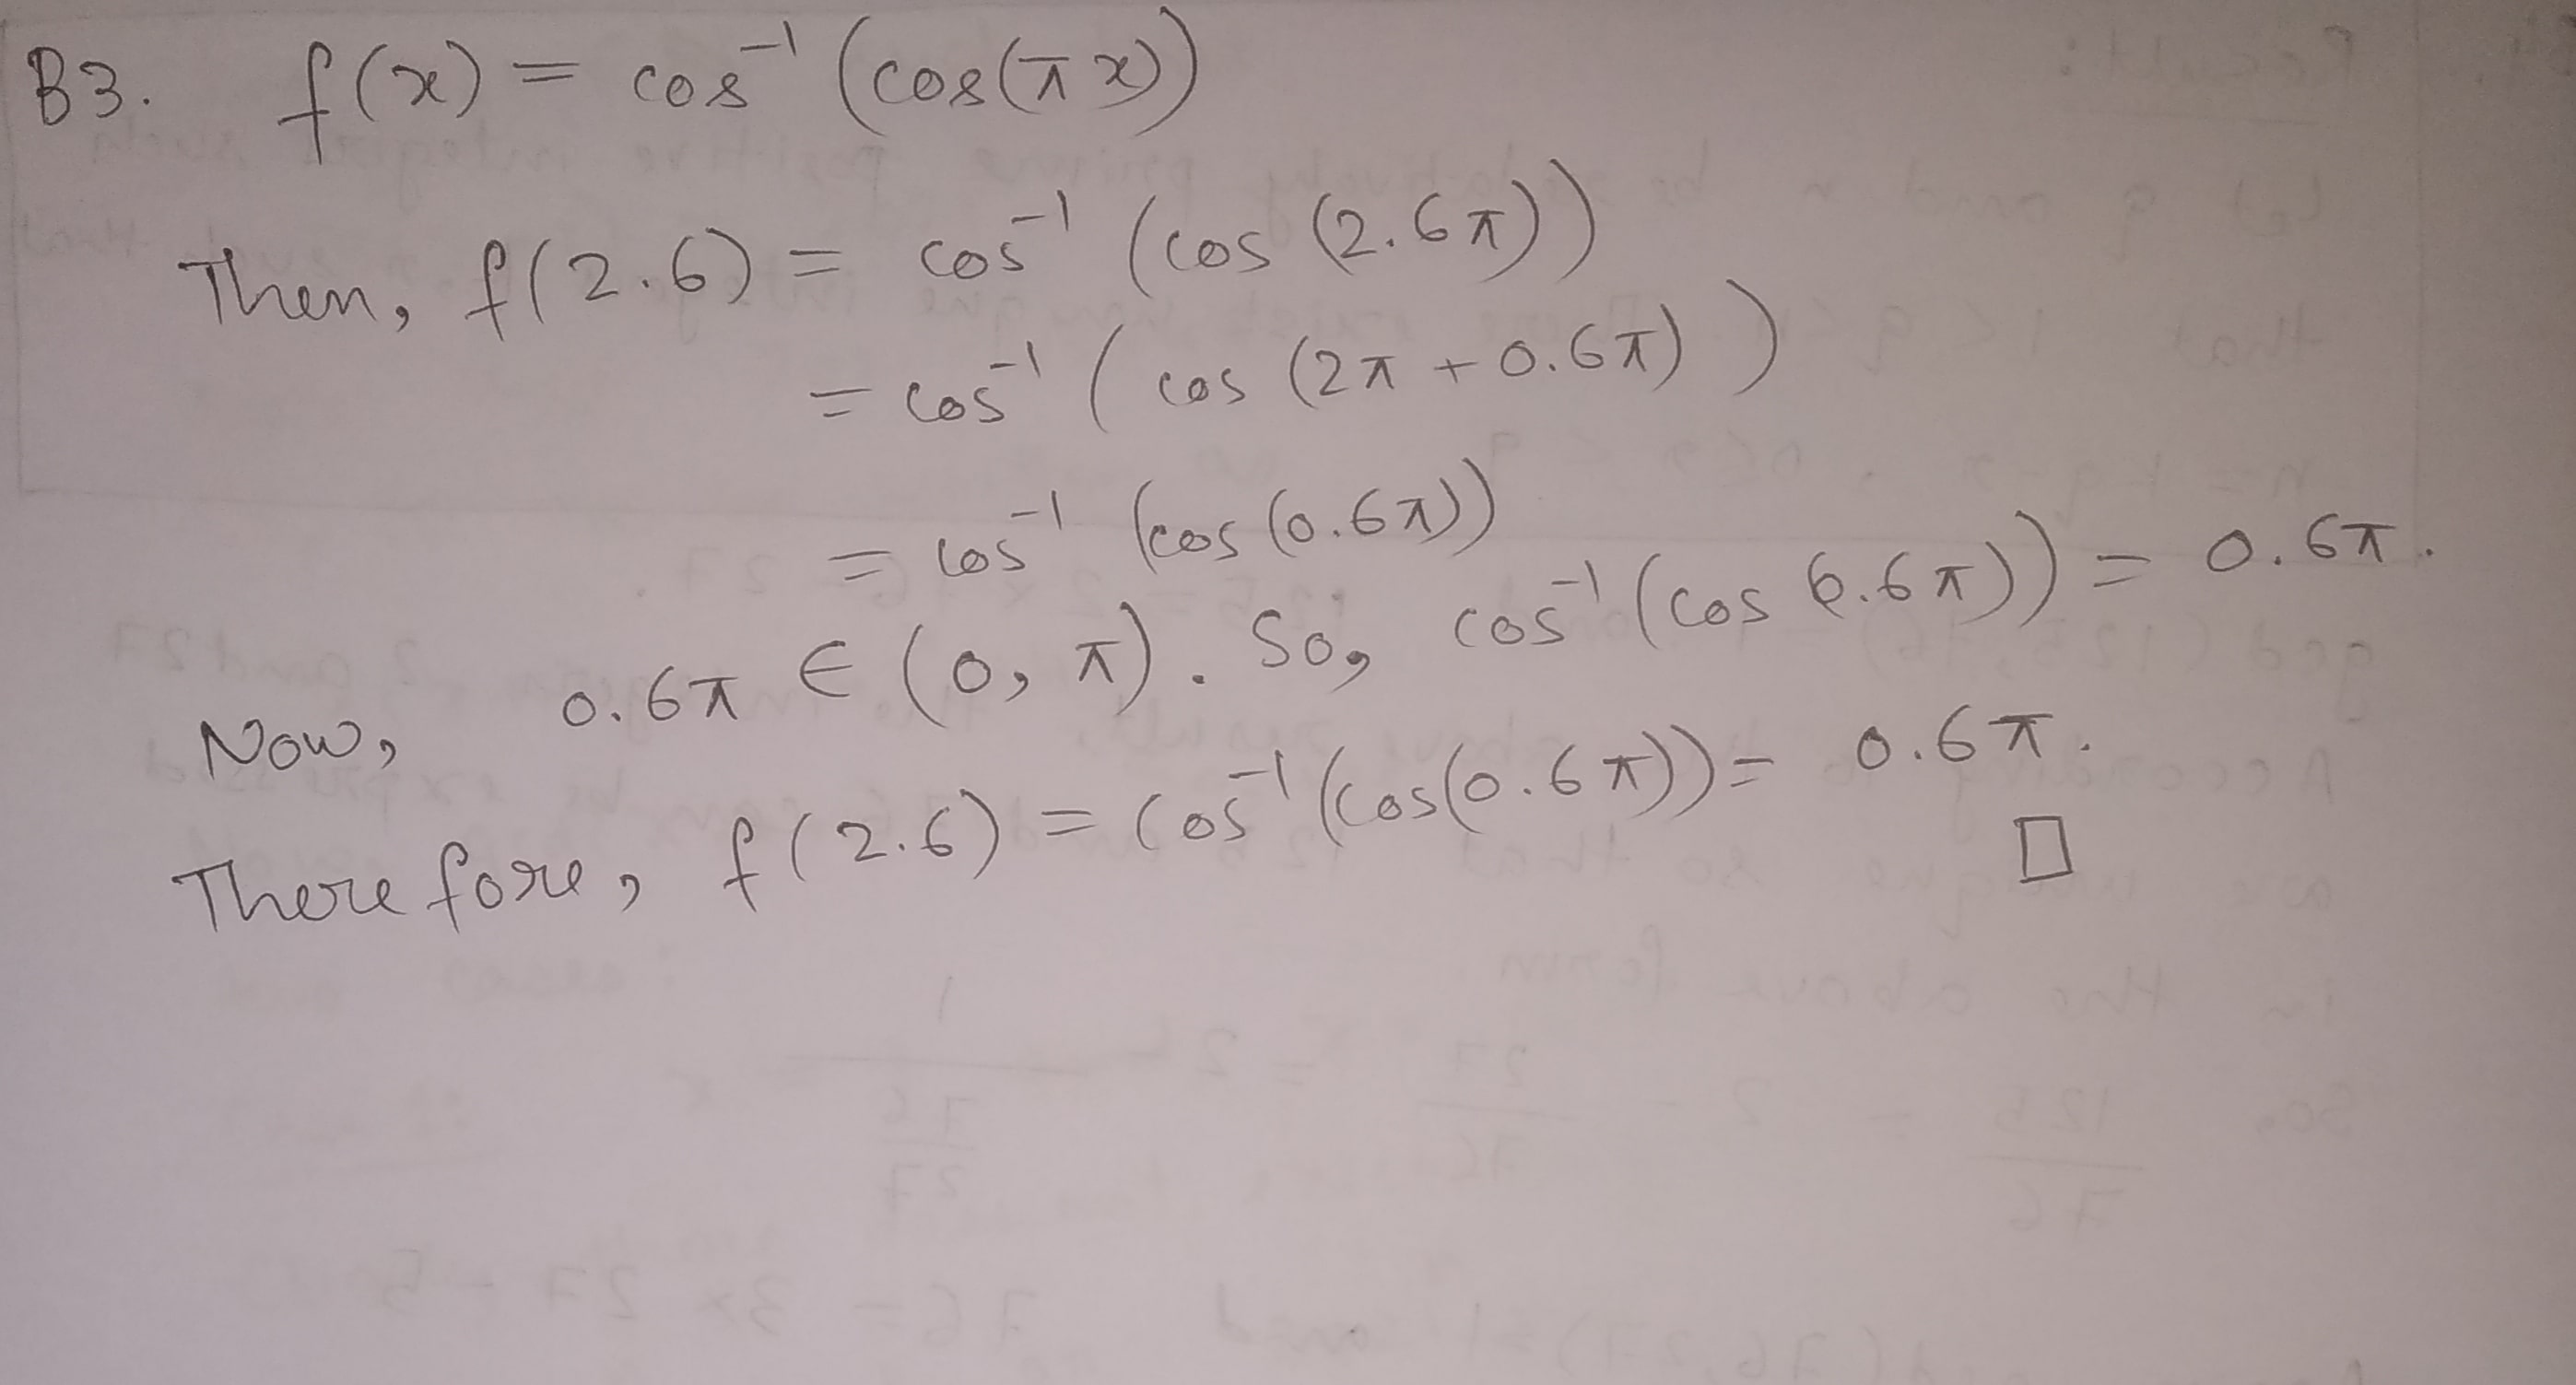 B3. f(x) = cos⁻¹(cos(πx))
Then, f(2.6) = cos⁻¹(cos(2.6π))
= cos⁻¹(cos(2π + 0.6π))
= cos⁻¹(cos(0.6π))
Now, 0.6π ∈ (0, π). So, cos⁻¹(cos 0.6π)) = 0.6π.
Therefore, f(2.6) = cos⁻¹(cos(0.6π)) = 0.6π.
□